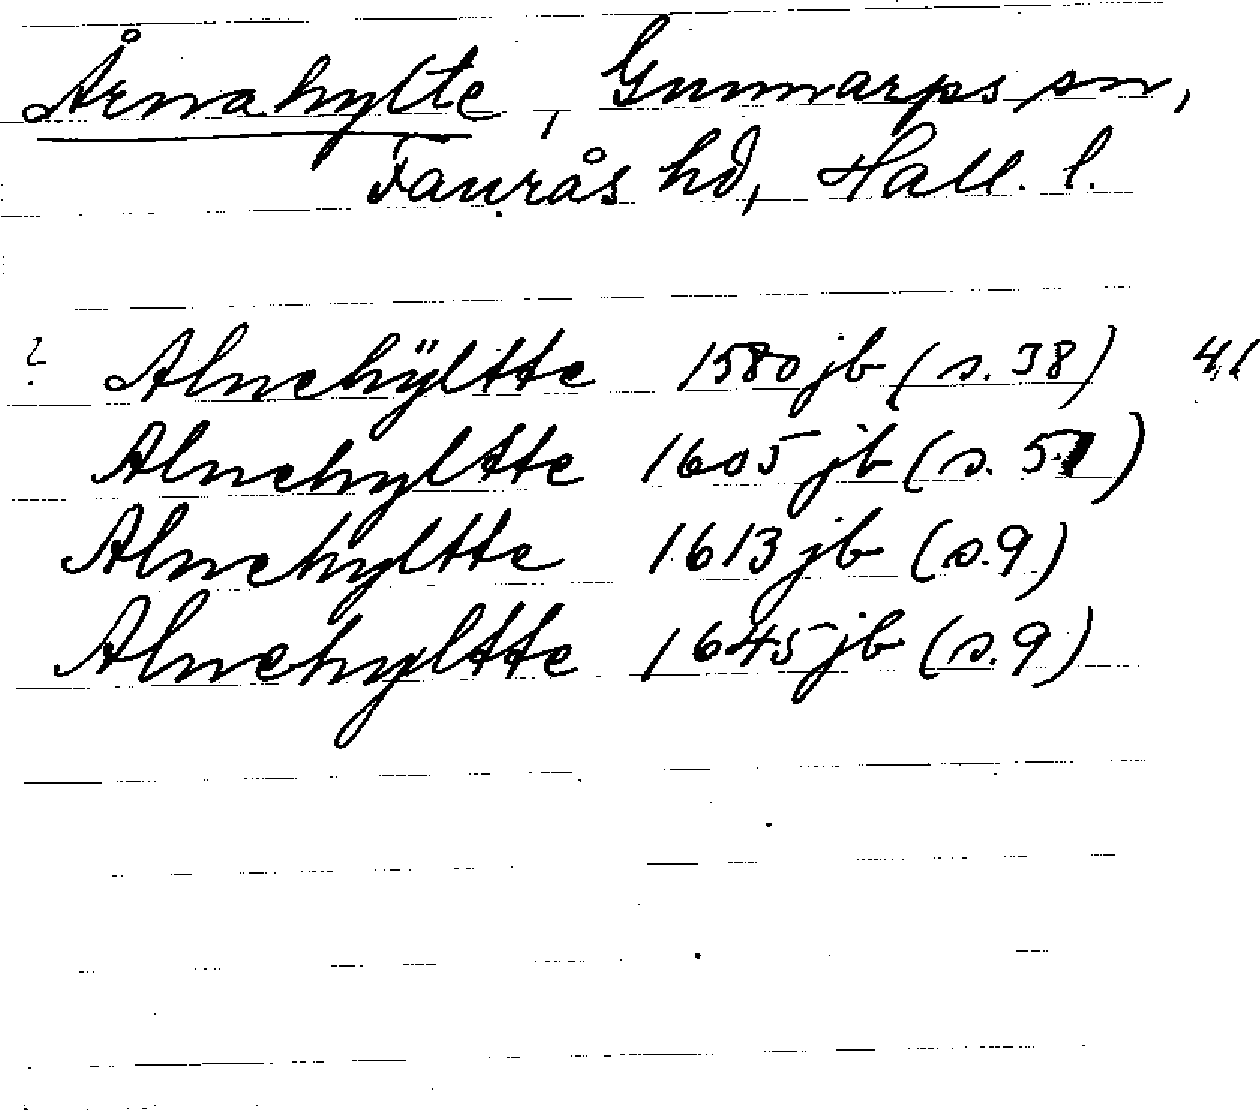 Årnahylte, Gunnarps sn,
Faurås hd, Hall. l.
? Alnehÿltte 1580 jb (s. 38) 41
Alnehyltte 1605 jb (s. 51)
Alnehyltte 1613 jb (s. 9)
Alnehyltte 1645 jb (s. 9)